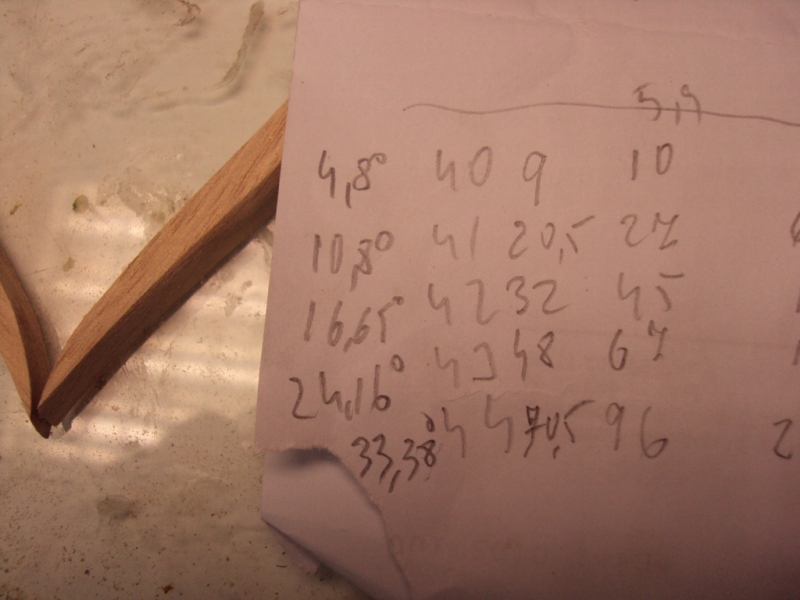 5,9
4,8° 40 9 10
10,8° 41 20,5 27
16,65° 42 32 45
24,16° 43 48 67
33,38° 44 70,5 96 2